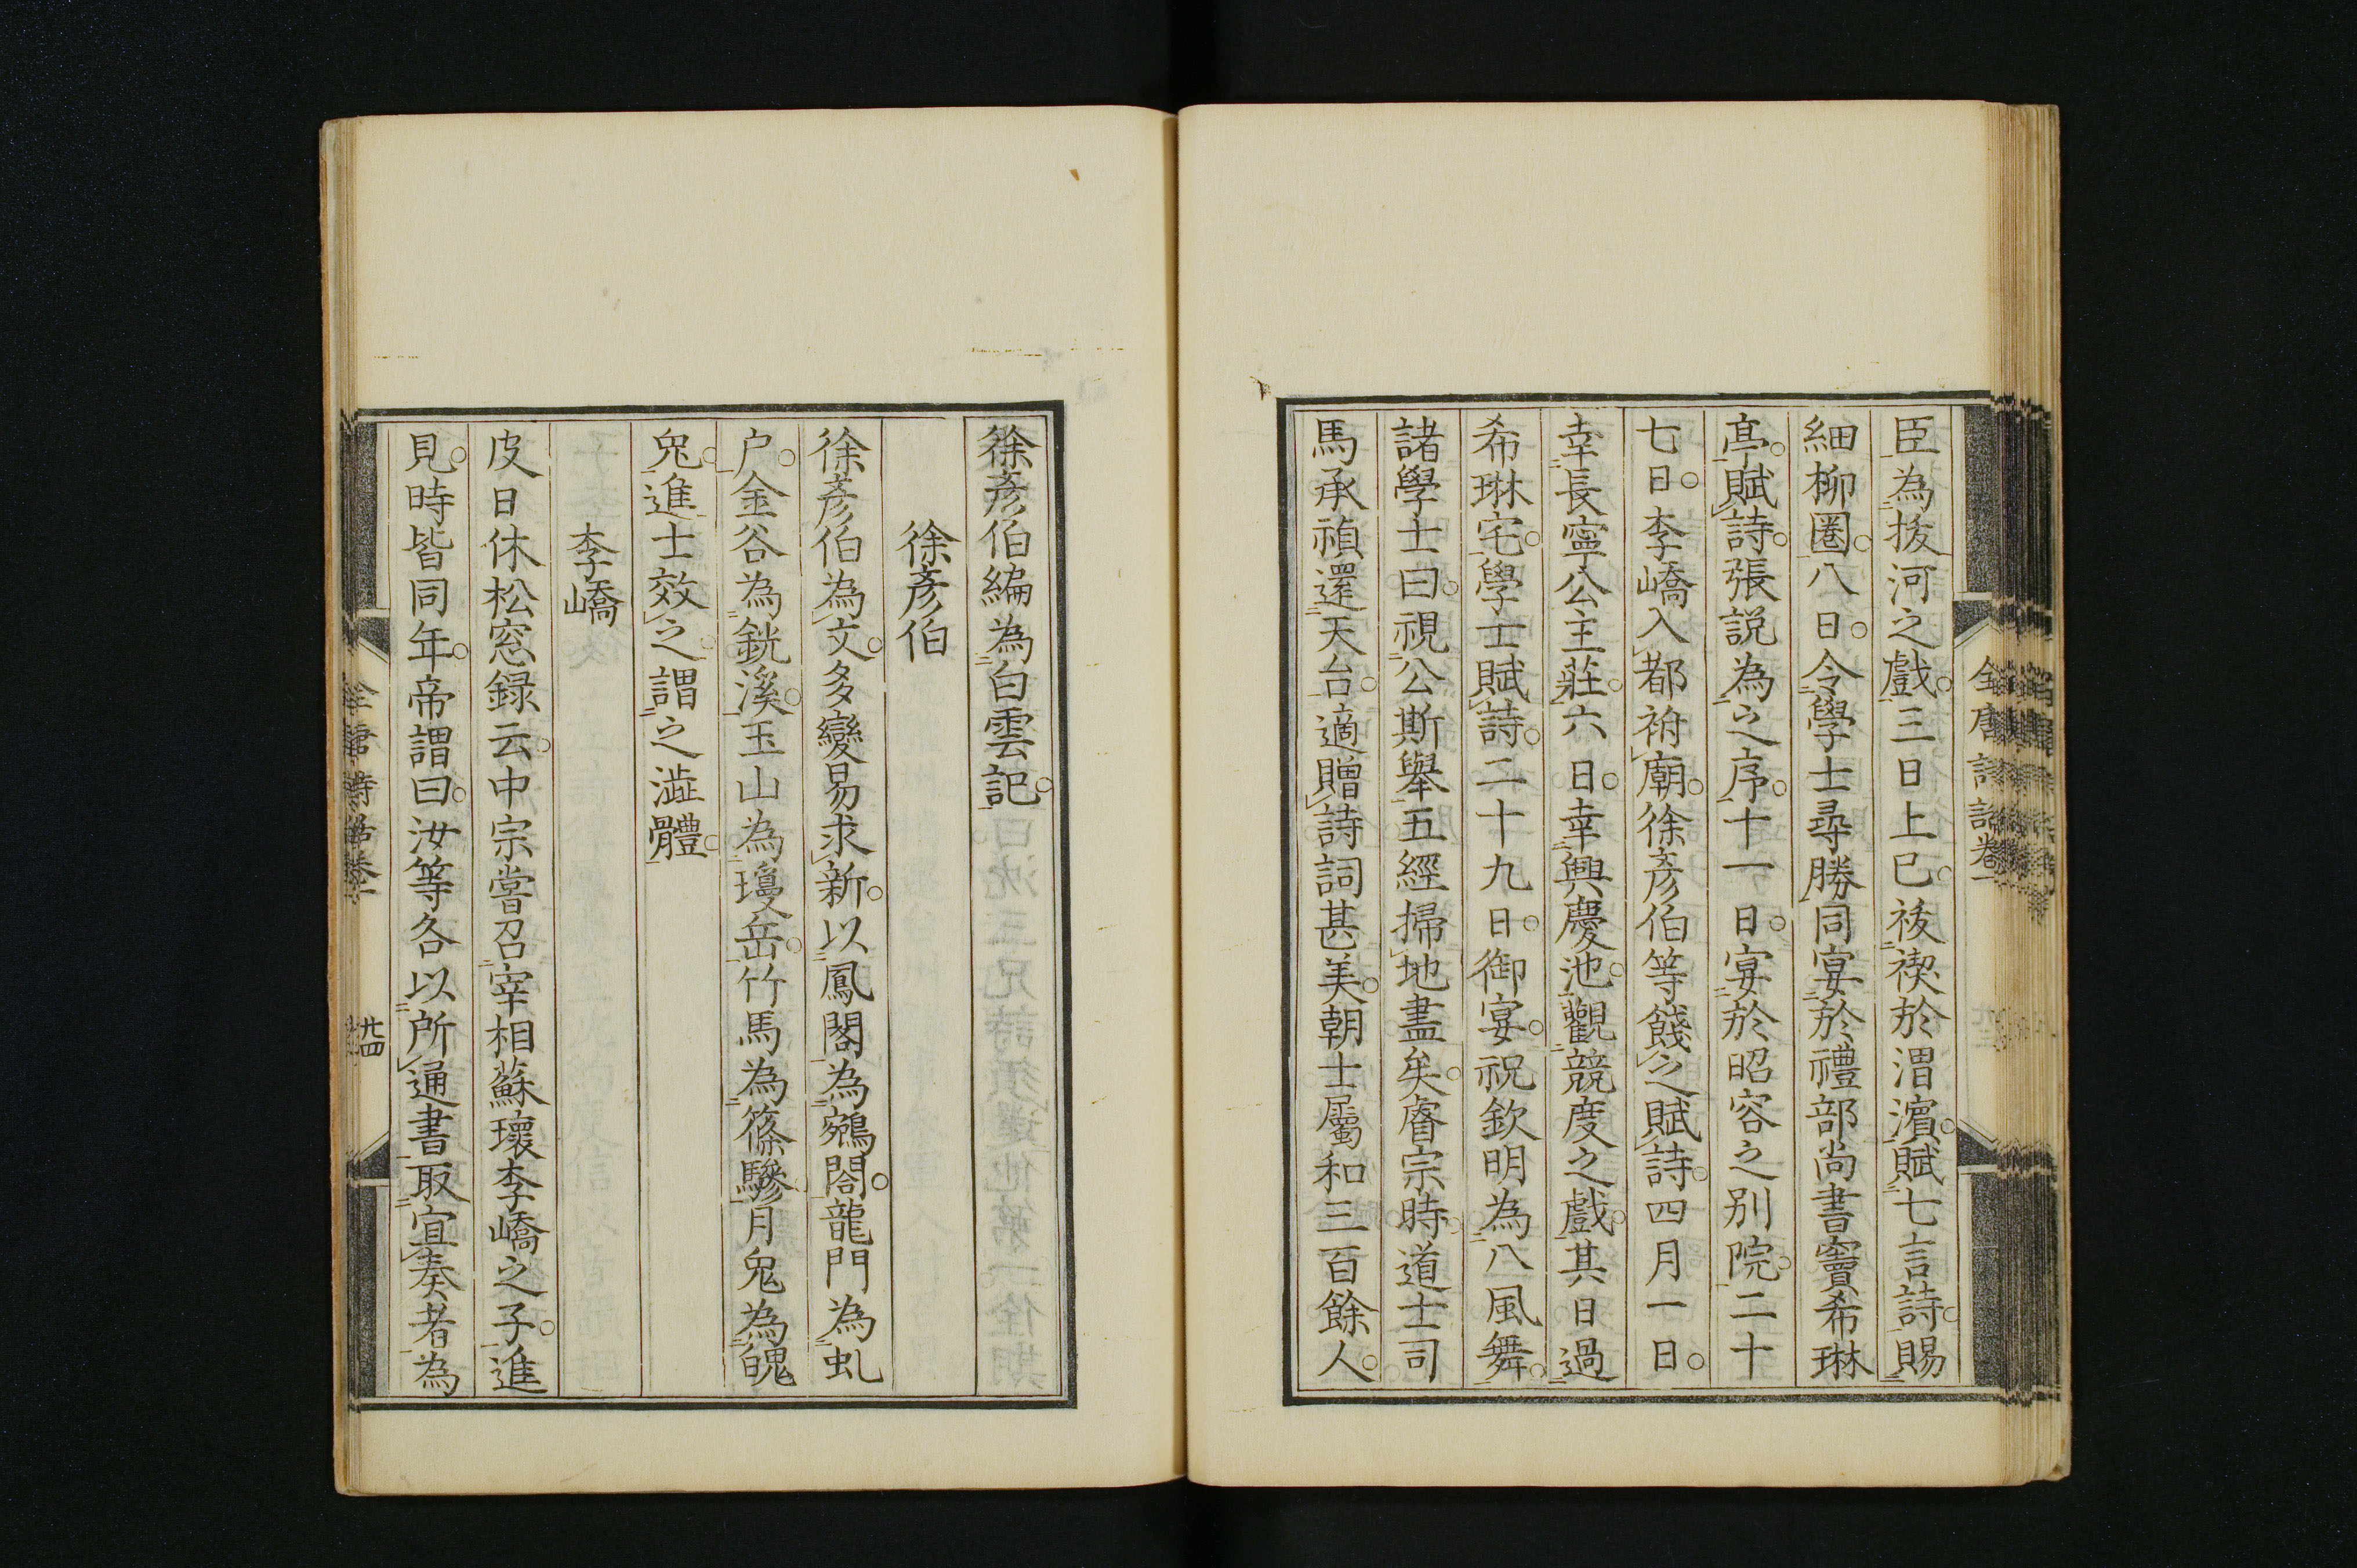 臣為拔河之戲三日上巳祓禊於渭濱賦七言詩賜
細柳圈八日令學士尋勝同宴於禮部尚書竇希琳
亭賦詩張説為之序十一日宴於昭容之别院二十
七日李嶠入都祔廟徐彥伯等餞之賦詩四月一日
幸長寧公主莊六日幸興慶池觀競度之戲其日過
希琳宅學士賦詩二十九日御宴祝欽明為八風舞
諸學士曰視公斯舉五經掃地盡矣睿宗時道士司
馬承禎還天台適贈詩詞甚美朝士屬和三百餘人
全唐詩話卷一
徐彥伯編為白雲記
徐彥伯
徐彥伯為文多變易求新以鳳閣為鵷閤龍門為虬
户金谷為銑溪玉山為瓊岳竹馬為篠驂月兔為魄
兔進士效之謂之澁體
李嶠
皮日休松窓録云中宗嘗召宰相蘇瓌李嶠之子進
見時皆同年帝謂曰汝等各以所通書取宜奏者為
全唐詩話卷一
廿四